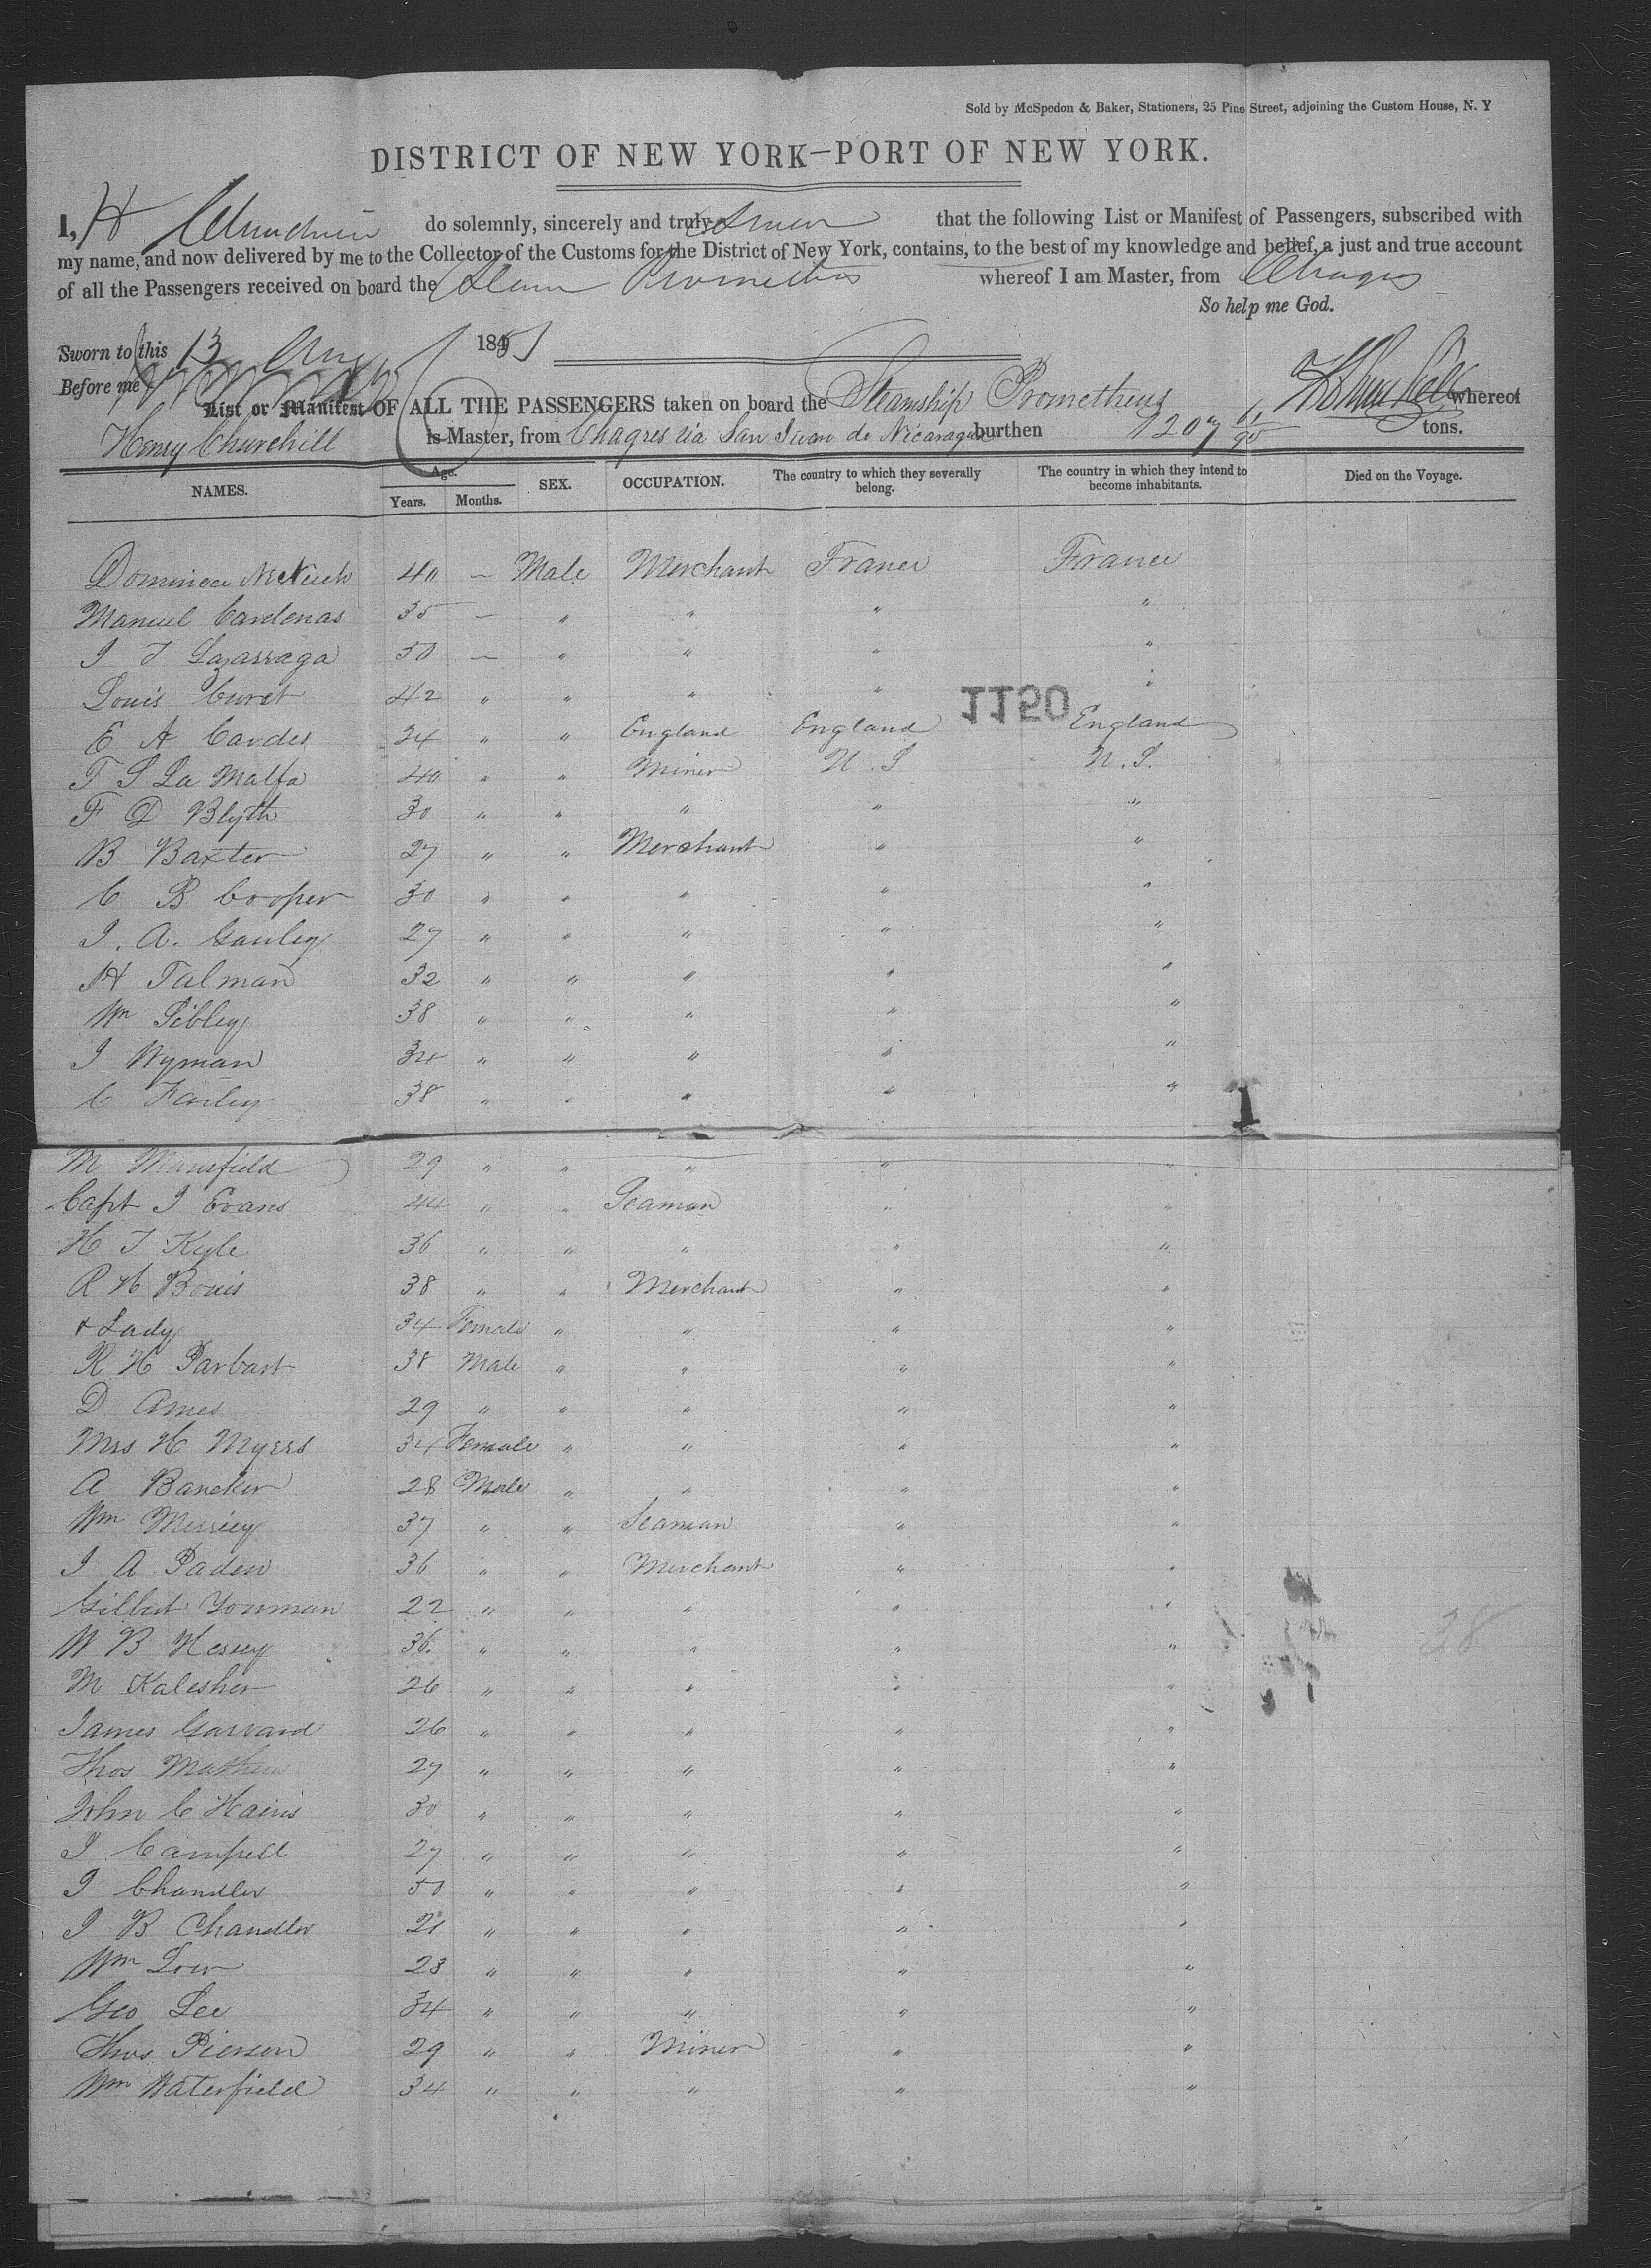 Sold by McSpedon & Baker, Stationers, 25 Pine Street, adjoining the Custom House, N. Y
DISTRICT OF NEW YORK—PORT OF NEW YORK.
I, H Churchill do solemnly, sincerely and truly swear that the following List or Manifest of Passengers, subscribed with
my name, and now delivered by me to the Collector of the Customs for the District of New York, contains, to the best of my knowledge and belief, a just and true account
of all the Passengers received on board the Steam Prometheus whereof I am Master, from Chagres
So help me God.
Sworn to this 13 Aug 1851
Before me H Churchill
List or Manifest OF ALL THE PASSENGERS taken on board the Steamship Prometheus whereof
Henry Churchill is Master, from Chagres via San Juan de Nicaragua burthen 1207 /95 tons.
NAMES. Age. Years. Months. SEX. OCCUPATION. The country to which they severally belong. The country in which they intend to become inhabitants. Died on the Voyage.
40 — Male Merchant France France
Manuel Cardenas 35 — " " " "
J T Lazarraga 50 — " " " "
Louis Curet 42 " " " " "
1150
E A Cardes 34 " " England England England
T S La Malfa 40 " " Miner U. S U. S.
F D Blyth 30 " " " " "
B Baxter 27 " " Merchant " "
C B Cooper 30 " " " " "
J. A. Gauley 27 " " " " "
H Talman 32 " " " " "
Wm Sibley 38 " " " " "
J Wyman 34 " " " " "
C Farley 38 " " " " "
M Mansfield 29 " " " " "
Capt J Evans 44 " " Seaman " "
H T Kyle 36 " " " " "
R H Bouis 38 " " Merchant " "
& Lady 34 Female " " " "
R H Parbart 38 Male " " " "
D Ames 29 " " " " "
Mrs H Myers 34 Female " " " "
A Bancker 28 Male " " " "
Wm 37 " " Seaman " "
J A Paden 36 " " Merchant " "
Gilbert Youman 22 " " " " "
W B 36. " " " " "
38
M Kalesher 26 " " " " "
James Garrard 26 " " " " "
Thos Mathew 27 " " " " "
John C Hains 30 " " " " "
J Campell 27 " " " " "
J Chandler 50 " " " " "
J B Chandler 21 " " " " "
Wm Low 23 " " " " "
Geo Lee 34 " " " " "
Thos Pierson 29 " " Miner " "
Wm Waterfield 34 " " " " "